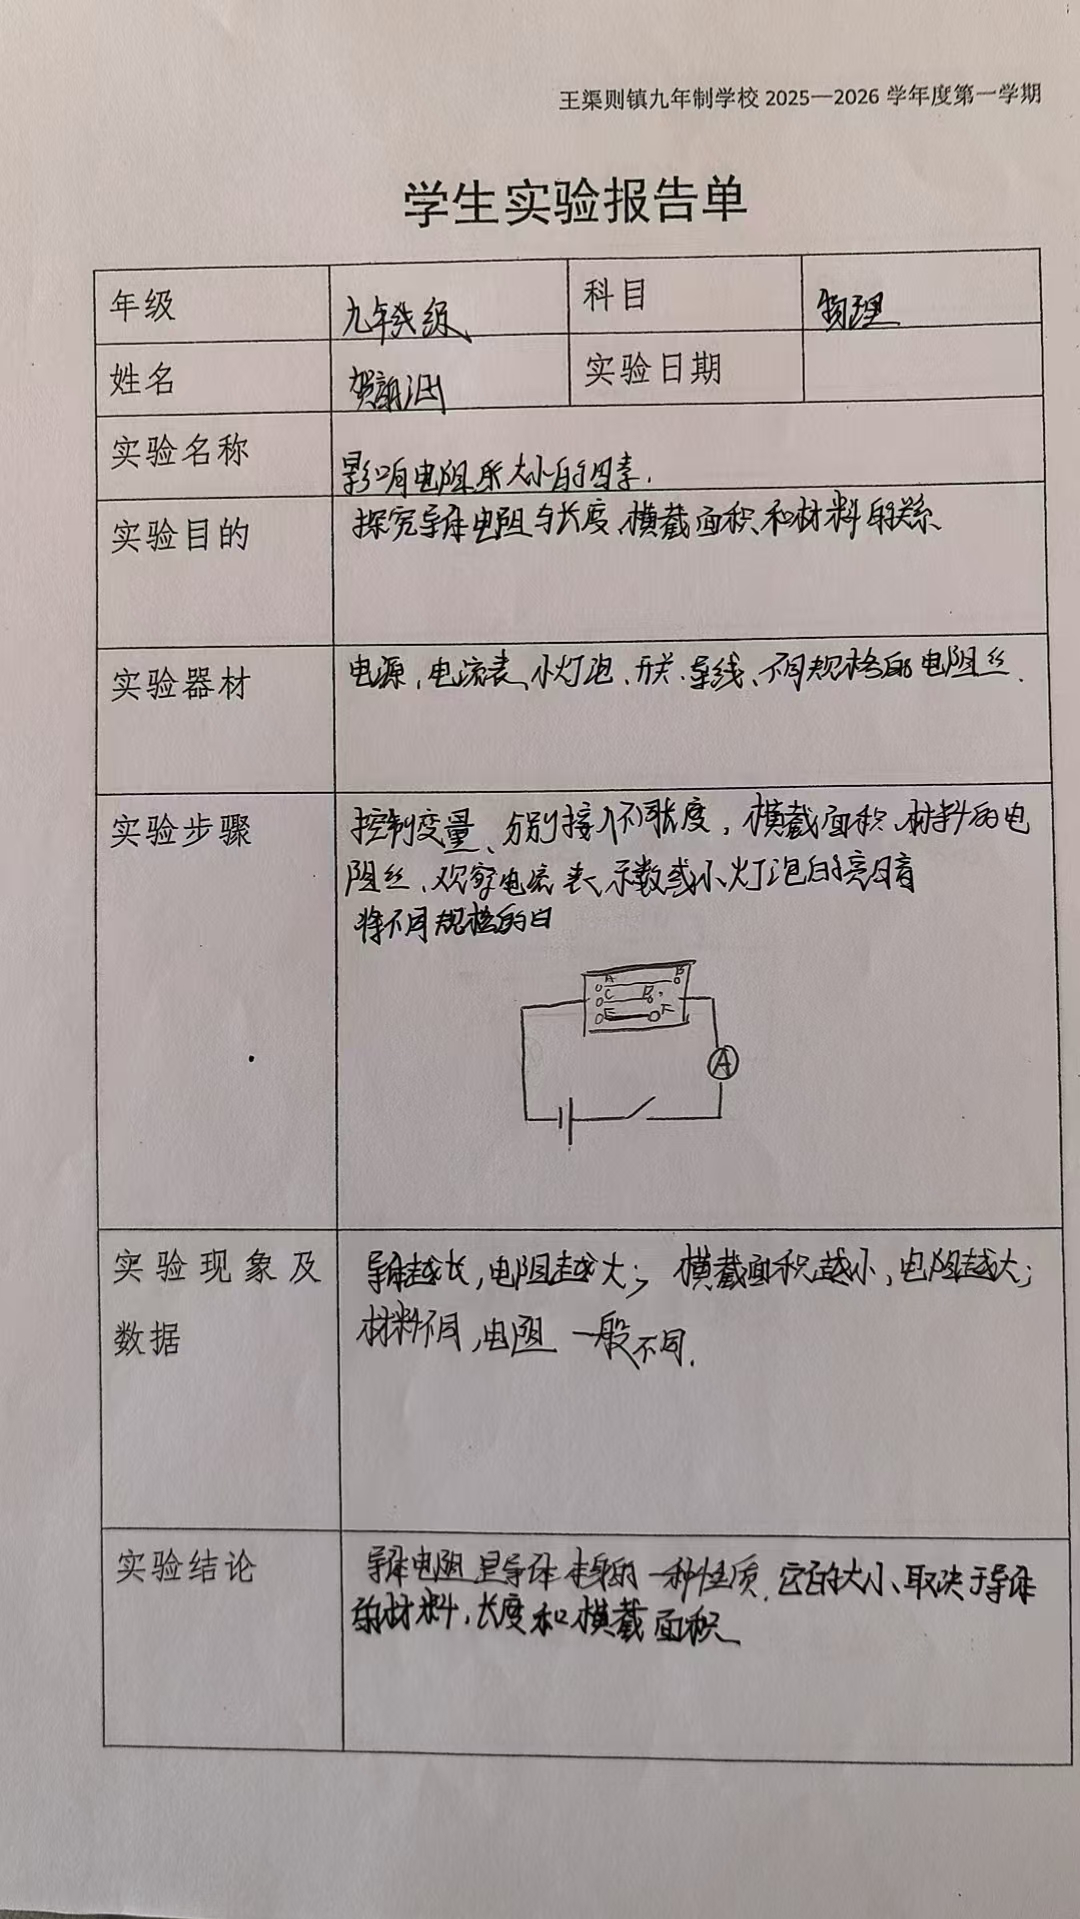 王渠则镇九年制学校 2025—2026 学年度第一学期
学生实验报告单
年级 九年级 科目 物理
姓名 实验日期
实验名称 影响电阻大小的因素.
实验目的 探究导体电阻与长度、横截面积和材料的关系
实验器材 电源、电流表、小灯泡、开关、导线、不同规格的电阻丝.
实验步骤 控制变量、分别接入不同长度,横截面积、材料的电
阻丝、观察电流表、示数或小灯泡的亮暗
将不同规格的
A B
C D
E F
A
实验现象及 导体越长,电阻越大; 横截面积越小,电阻越大;
数据 材料不同,电阻一般不同.
实验结论 导体电阻是导体本身的一种性质.它的大小、取决于导体
的材料,长度和横截面积